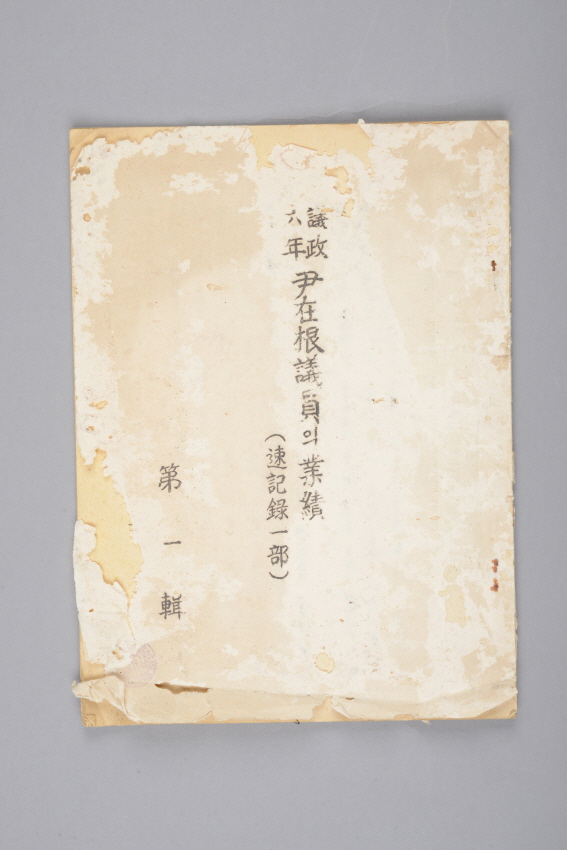 議政六年 尹在根議員의 業績
(速記錄一部)
第一輯